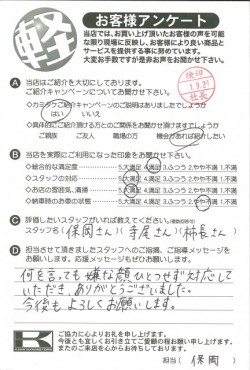 軽
お客様アンケート
当店では、お買い上げ頂いたお客様の声を可能
な限り現場に反映し、お客様により良い商品と
サービスを提供する事に努めています。
大変お手数ですが是非お声をお聞かせ下さい。
検印
1.9.21
社長
A 当店はご紹介を大切にしております。
ご紹介キャンペーンについてお聞かせ下さい。
○カミタケご紹介キャンペーンのご説明はありましたでしょうか
はい いいえ
○具体的にご紹介頂ける方とのご関係をお聞かせ頂けますでしょうか
ご親族 ご友人 職場の方 機会があれば紹介したい
B 当店を実際にご利用になった印象をお聞かせ下さい。
○総合的な満足度 5.大満足 4.満足 3.ふつう 2.やや不満 1.不満
○スタッフの対応 5.大満足 4.満足 3.ふつう 2.やや不満 1.不満
○お店の雰囲気、清掃 5.大満足 4.満足 3.ふつう 2.やや不満 1.不満
○納車時のお車の状態 5.大満足 4.満足 3.ふつう 2.やや不満 1.不満
C 評価したいスタッフがいれば教えてください。(複数回答可)
スタッフ名( 保岡さん )( 手尾さん )( 柿長さん )
D 担当させて頂きましたスタッフへのご感想、ご指導メッセージを
お願いします。応援メッセージもぜひお願いします。
何を言っても嫌な顔ひとつせず対応して
いただき ありがとうございました。
今後も よろしくお願いします。
K
ご協力に心よりお礼を申し上げます。
今後とも宜しくお引き立てご愛顧の程お願い申し上げます。
またのご来店を心からお待ちしております。
担当( 保岡 )